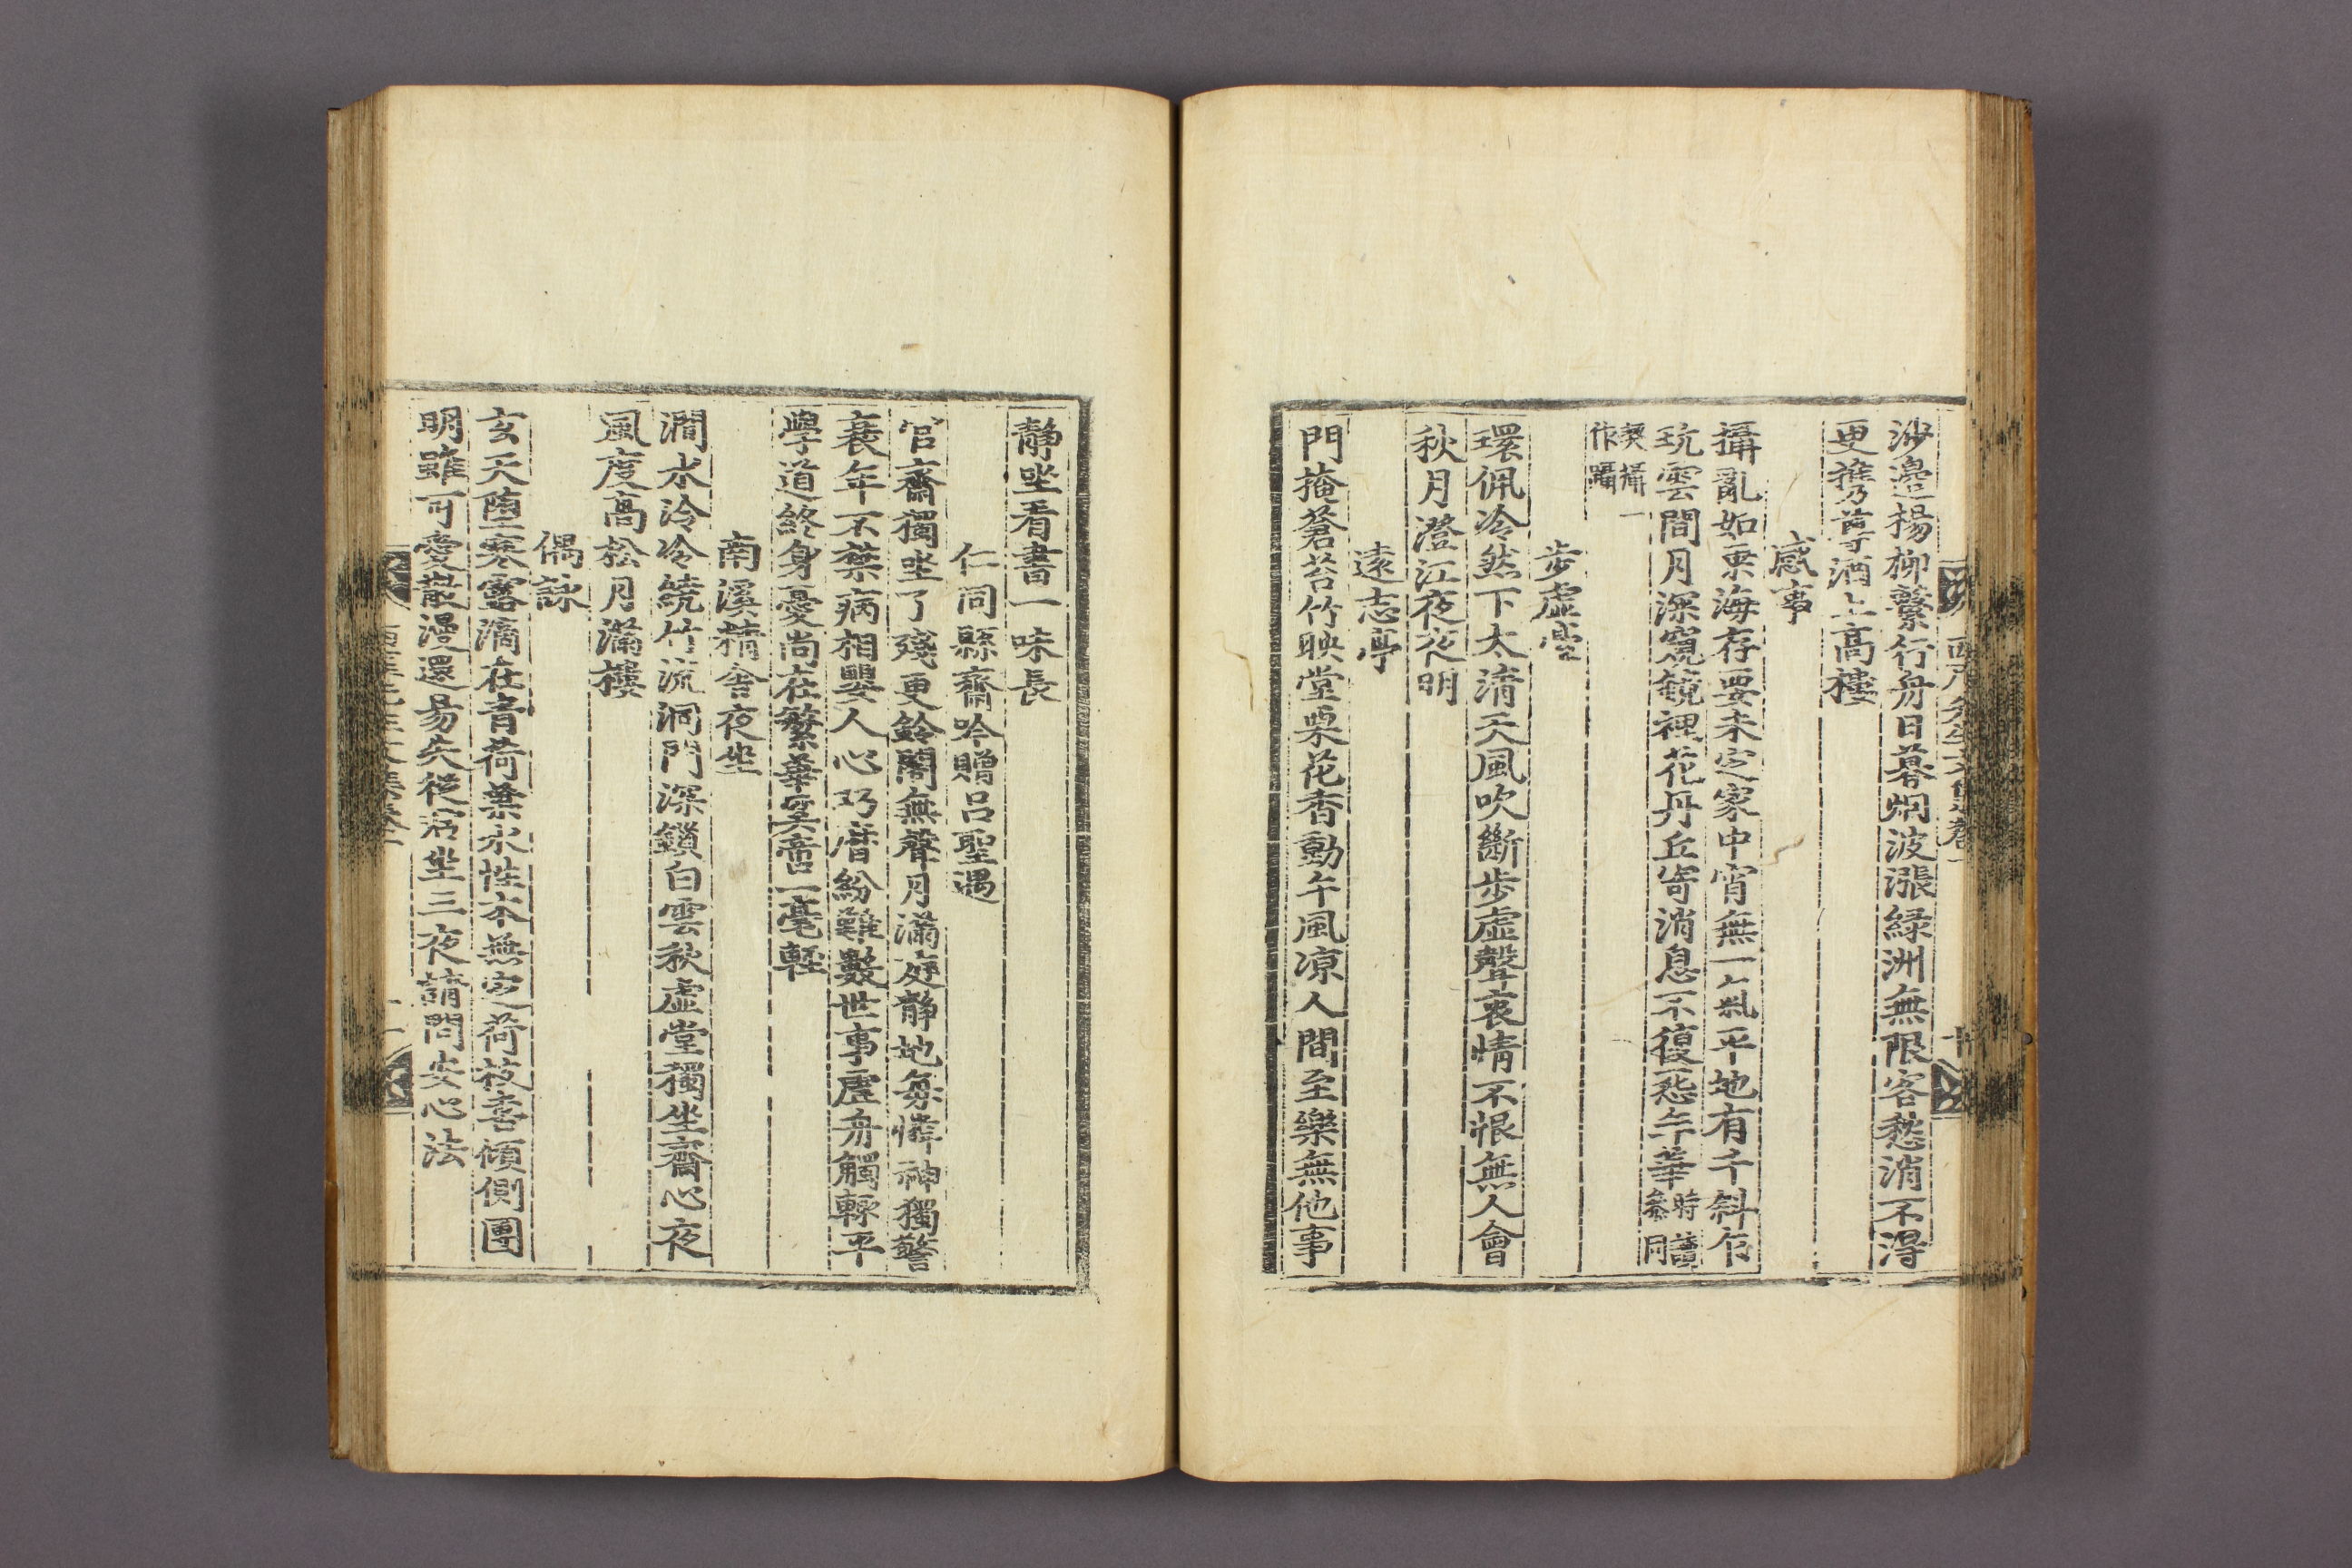 沙邉楊柳繫行舟日暮烟波漲緑洲無限客愁消不得
更携尊酒上高樓
感事
攝亂如乗海存要未定家中宵無一氣平地有千斜乍
玩雲間月深窺鏡裡花丹丘寄消息不復惡年華時讀參同
契攝一作躡
步虛堂
環佩冷然下太淸天風吹斷步虛聲哀情不恨無人會
秋月澄江夜夜明
遠志亭
門掩蒼苔竹映堂栗花香動午風凉人間至樂無他事
靜坐看書一味長
仁同縣齋吟贈吕聖遇
官齋獨坐了殘更鈴閣無聲月滿庭靜地無憐神獨警
衰年不藥病相嬰人心巧曆紛難數世事虛舟觸輒平
學道終身憂尚在繁華奚啻一毫輕
南溪精舍夜坐
澗水泠泠繞竹流洞門深鎖白雲秋虛堂獨坐齋心夜
風度高松月滿樓
偶詠
玄天墮寒露滴在靑荷葉水性本無定荷枝喜傾側團
明雖可愛散漫還易失從君坐三夜請問安心法